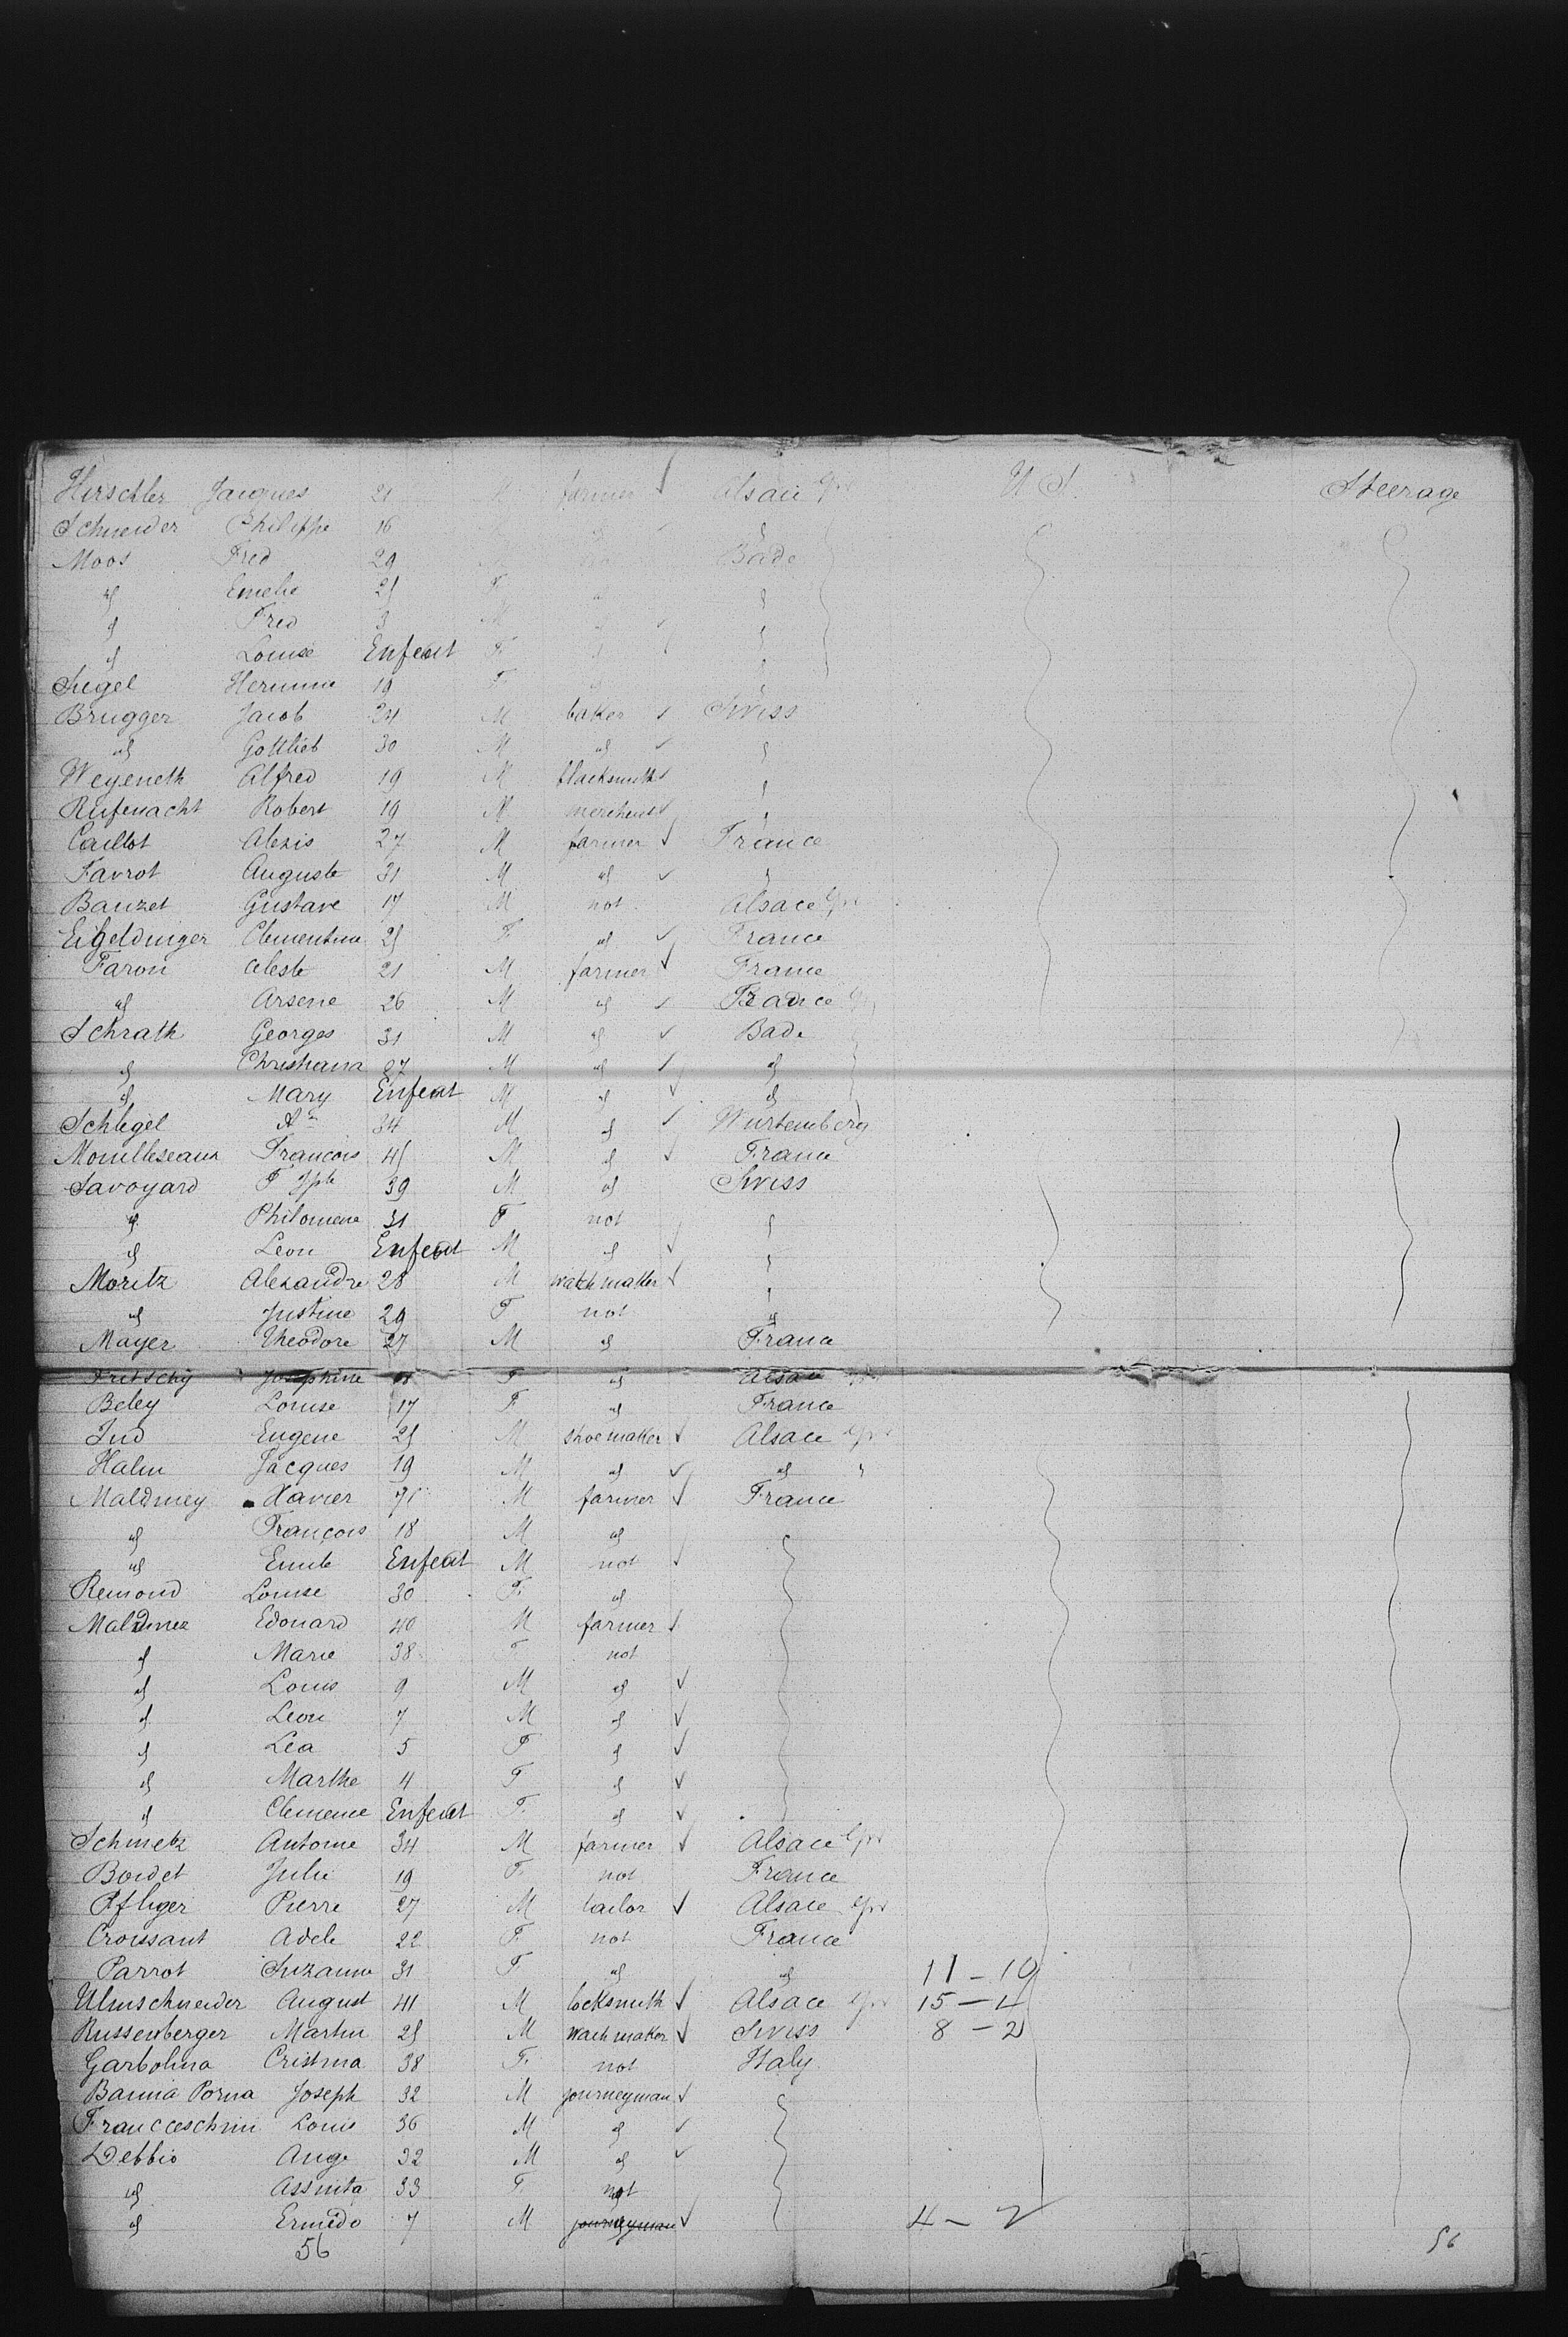 Hirschler Jacques 21 M farmer Alsace U S. Steerage
Schneider Philippe 16 "
Moos Fred 29 Bade
" Emelie 25 F " "
" Fred 3 M " "
" Louise Enfeant F " "
Siegel Hermine 19 F " "
Brugger Jacob 24 M baker Swiss
" Gottlieb 30 M " "
Wegeneth Alfred 19 M blacksmith "
Rufenacht Robert 19 M merchent "
Caillot Alexis 27 M farmer France
Favrot Auguste 31 M " "
Bauzet Gustave 17 M not Alsace
Eigeldinger Clementine 25 F " France
Faron Celeste 21 M farmer France
" Arsene 26 M " France
Schrath Georges 31 M " Bade
" Christiana 27 M " "
" Mary Enfeant M " "
Schlegel 34 M " Wurtemberg
Mouilleseaux François 45 M " France
Savoyard F Jph 39 M " Swiss
" Philomene 31 F not "
" Leon Enfeant M " "
Moritz Alexandre 28 M watchmaker "
" Justine 29 F not "
Mayer Theodore 27 M " France
Fritschy Josephine F " Alsace
Beley Louise 17 F " France
Jud Eugene 25 M shoemaker Alsace
Halm Jacques 19 M " " "
Maldiney Xavier M farmer France
" François 18 M "
" Emile Enfeant M not
Remond Louise 30 F. "
Maldinez Edouard 40 M farmer
" Marie 38 F. not
" Louis 9 M "
" Leon 7 M "
" Lea 5 F "
" Marthe 4 F "
" Clemence Enfeant F. "
Schmetz Antoine 34 M farmer Alsace
Boidet Julie 19 F. not France
Pfliger Pierre 27 M tailor Alsace
Croissant Adele 22 F. not France
Parrot Suzanne 31 F " " 11 - 10
Ulmschneider August 41 M locksmith Alsace 15 - 4
Russenberger Martin 25 M watchmaker Swiss 8 - 2
Garbolina Cristina 38 F. not Italy
Banna Porna Joseph 32 M journeyman
Francceschini Louis 36 M "
Debbio Ange 32 M "
" Assunta 33 F. not
" Ermedo 7 M journeyman 4 - 2
56 56